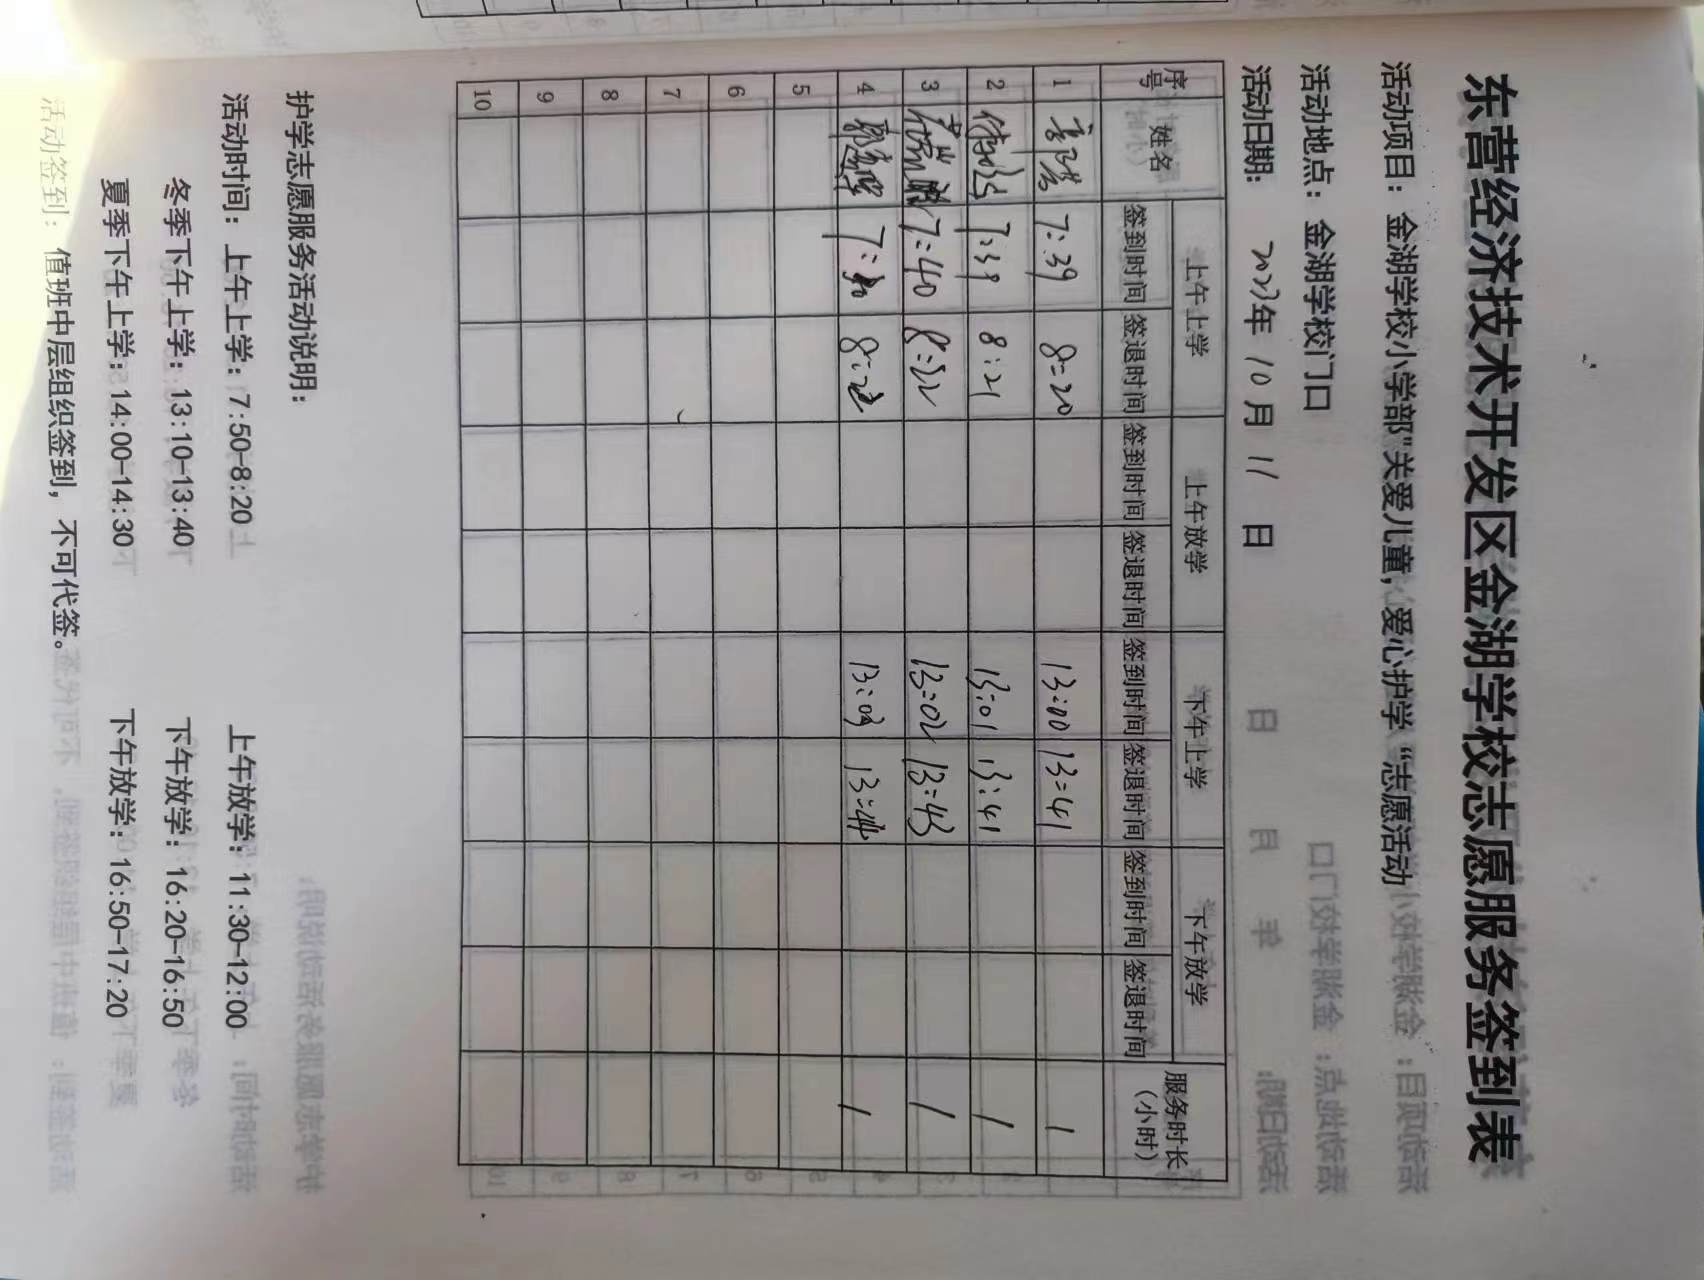 东营经济技术开发区金湖学校志愿服务签到表
活动项目：金湖学校小学部"关爱儿童，爱心护学"志愿活动
活动地点：金湖学校门口
活动日期： 2023年 10月 11 日
序号 姓名 上午上学 上午放学 下午上学 下午放学 服务时长（小时）
签到时间 签退时间 签到时间 签退时间 签到时间 签退时间 签到时间 签退时间
1 7:39 8:20 13:00 13:41 1
2 7:39 8:21 13:01 13:41 1
3 7:40 8:22 13:02 13:43 1
4 13:03 13:44 1
5
6
7
8
9
10
护学志愿服务活动说明：
活动时间：上午上学：7:50-8:20 上午放学：11:30-12:00
冬季下午上学：13:10-13:40 下午放学：16:20-16:50
夏季下午上学：14:00-14:30 下午放学：16:50-17:20
活动签到：值班中层组织签到，不可代签。